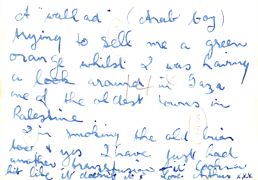 A "wallad" (Arab boy)
trying to sell me a green
orange whilst I was having
a look around in Gaza
one of the oldest towns in
Palestine ..
I'm smoking the old briar
too & yes I have just had
another
bit like it doesn't it? Love xxx